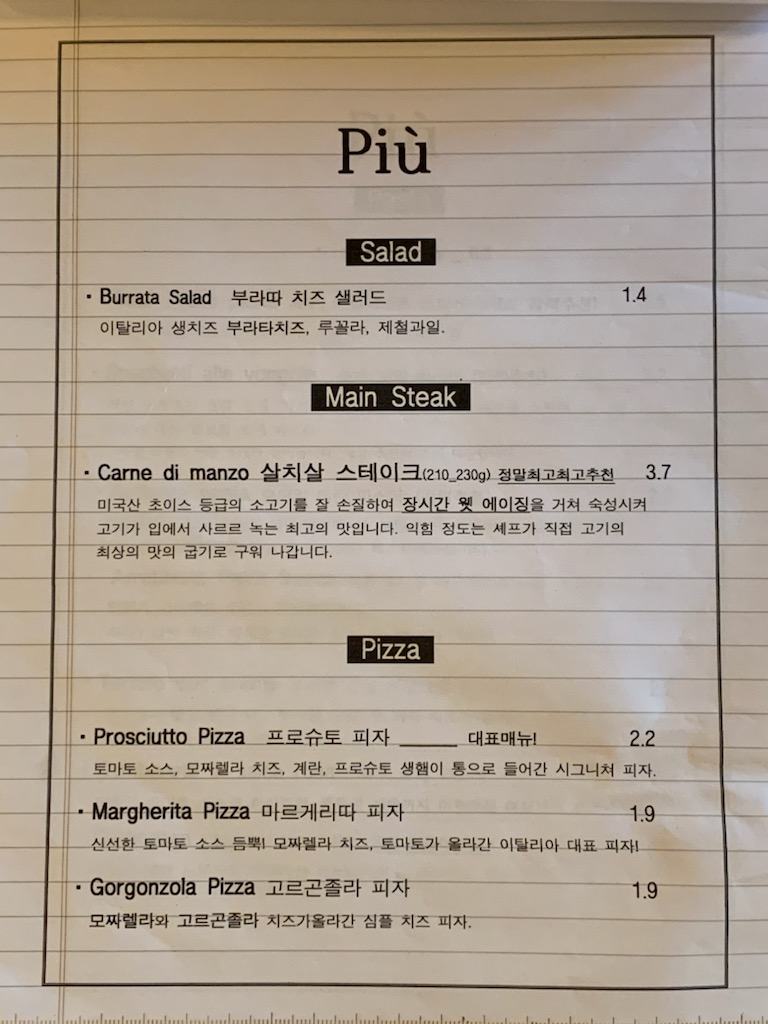 Più
Salad
· Burrata Salad 부라따 치즈 샐러드 1.4
이탈리아 생치즈 부라타치즈, 루꼴라, 제철과일.
Main Steak
· Carne di manzo 살치살 스테이크(210_230g) 정말최고최고추천 3.7
미국산 초이스 등급의 소고기를 잘 손질하여 장시간 웻 에이징을 거쳐 숙성시켜
고기가 입에서 사르르 녹는 최고의 맛입니다. 익힘 정도는 셰프가 직접 고기의
최상의 맛의 굽기로 구워 나갑니다.
Pizza
· Prosciutto Pizza 프로슈토 피자 ______ 대표매뉴! 2.2
토마토 소스, 모짜렐라 치즈, 계란, 프로슈토 생햄이 통으로 들어간 시그니쳐 피자.
· Margherita Pizza 마르게리따 피자 1.9
신선한 토마토 소스 듬뿍! 모짜렐라 치즈, 토마토가 올라간 이탈리아 대표 피자!
· Gorgonzola Pizza 고르곤졸라 피자 1.9
모짜렐라와 고르곤졸라 치즈가올라간 심플 치즈 피자.